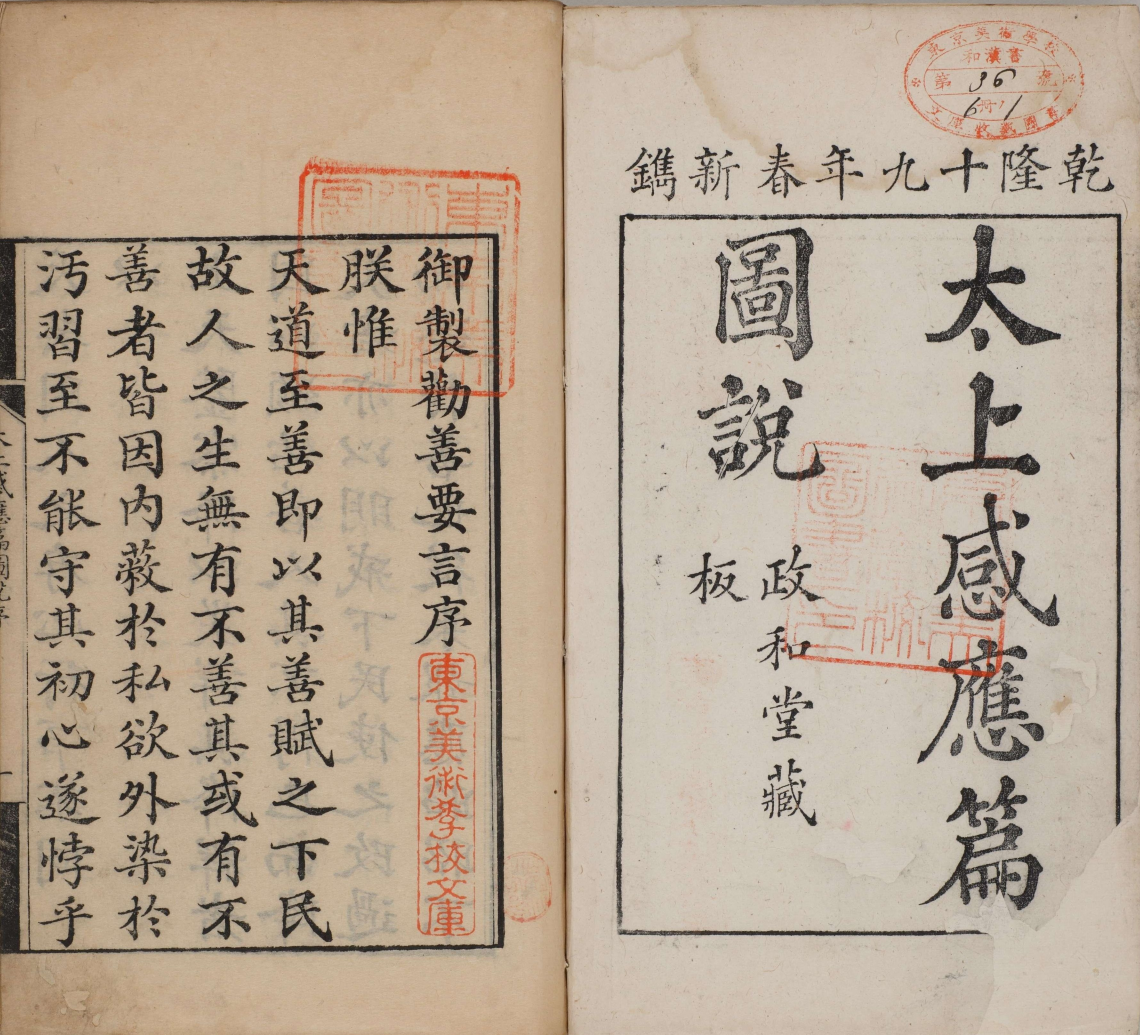 乾隆十九年春新鐫
太上感應篇
圖說
政和堂藏
板
東京美術學校
和漢書
第36號
6册ノ1
文庫收藏圖書
御製勸善要言序
朕惟
天道至善即以其善賦之下民
故人之生無有不善其或有不
善者皆因内蔽於私欲外染於
汚習至不能守其初心遂悖乎
東京美術學校文庫